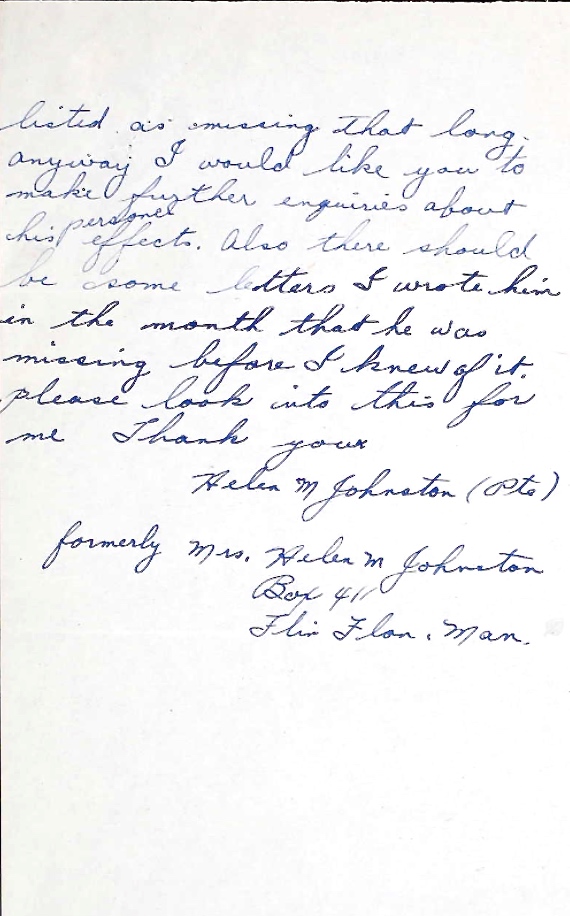 listed as missing that long.
anyway I would like you to
make further enquiries about
his personel effects. Also there should
be some letters I wrote him
in the month that he was
missing before I knew of it.
please look into this for
me Thank your
Helen M Johnston (Pte)
formerly Mrs. Helen M Johnston
Box 411
Flin Flon. Man.